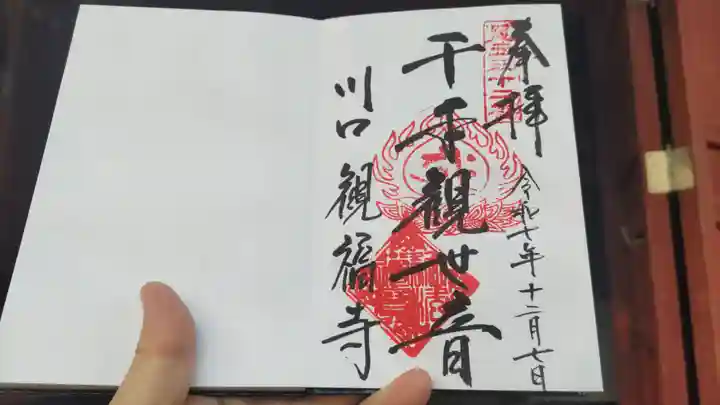 奉拝
令和七年十二月七日
千手観世音
川口 観福寺